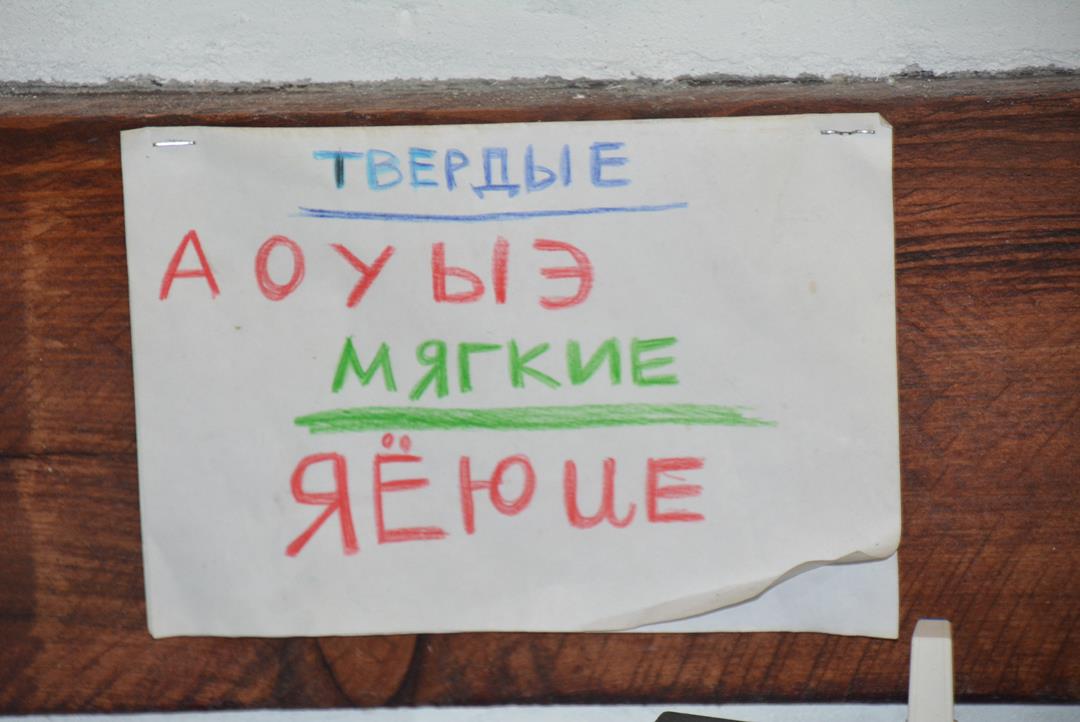 ТВЕРДЫЕ
А О У Ы Э
МЯГКИЕ
Я Ё Ю И Е